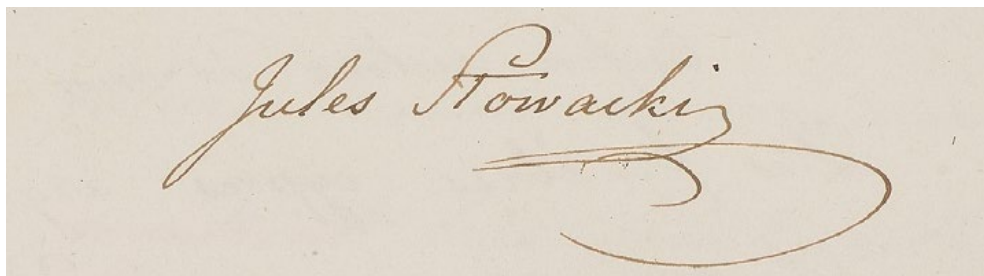 Jules Słowacki